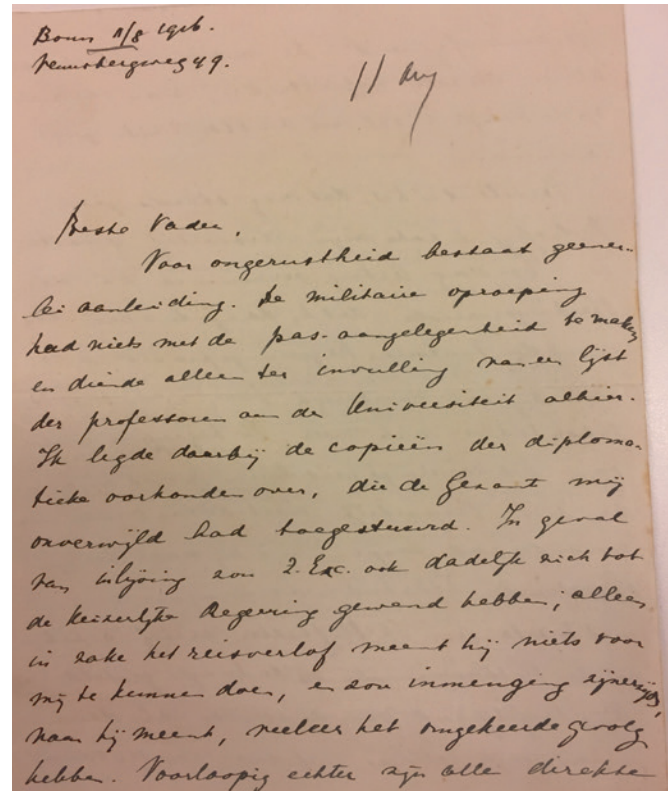 Bonn 11/8 1916.
Venusbergweg 49.
11 Aug
Beste Vader,
Voor ongerustheid bestaat geener-
lei aanleiding. De militaire oproeping
had niets met de pas-aangelegenheid te maken
en diende alleen ter invulling van een lijst
der professoren aan de Universiteit alhier.
Ik legde daarbij de copieën der diploma-
tieke oorkonden over, die de Gezant mij
onverwijld had toegestuurd. In geval
van inlijving zou Z. Exc. ook dadelijk zich tot
de keizerlijke Regeering gewend hebben; alleen
in zake het reisverlof meent hij niets voor
mij te kunnen doen, en zou inmenging zijnerzijds,
naar hij meent, veeleer het omgekeerde gevolg
hebben. Voorloopig echter zijn alle direkte